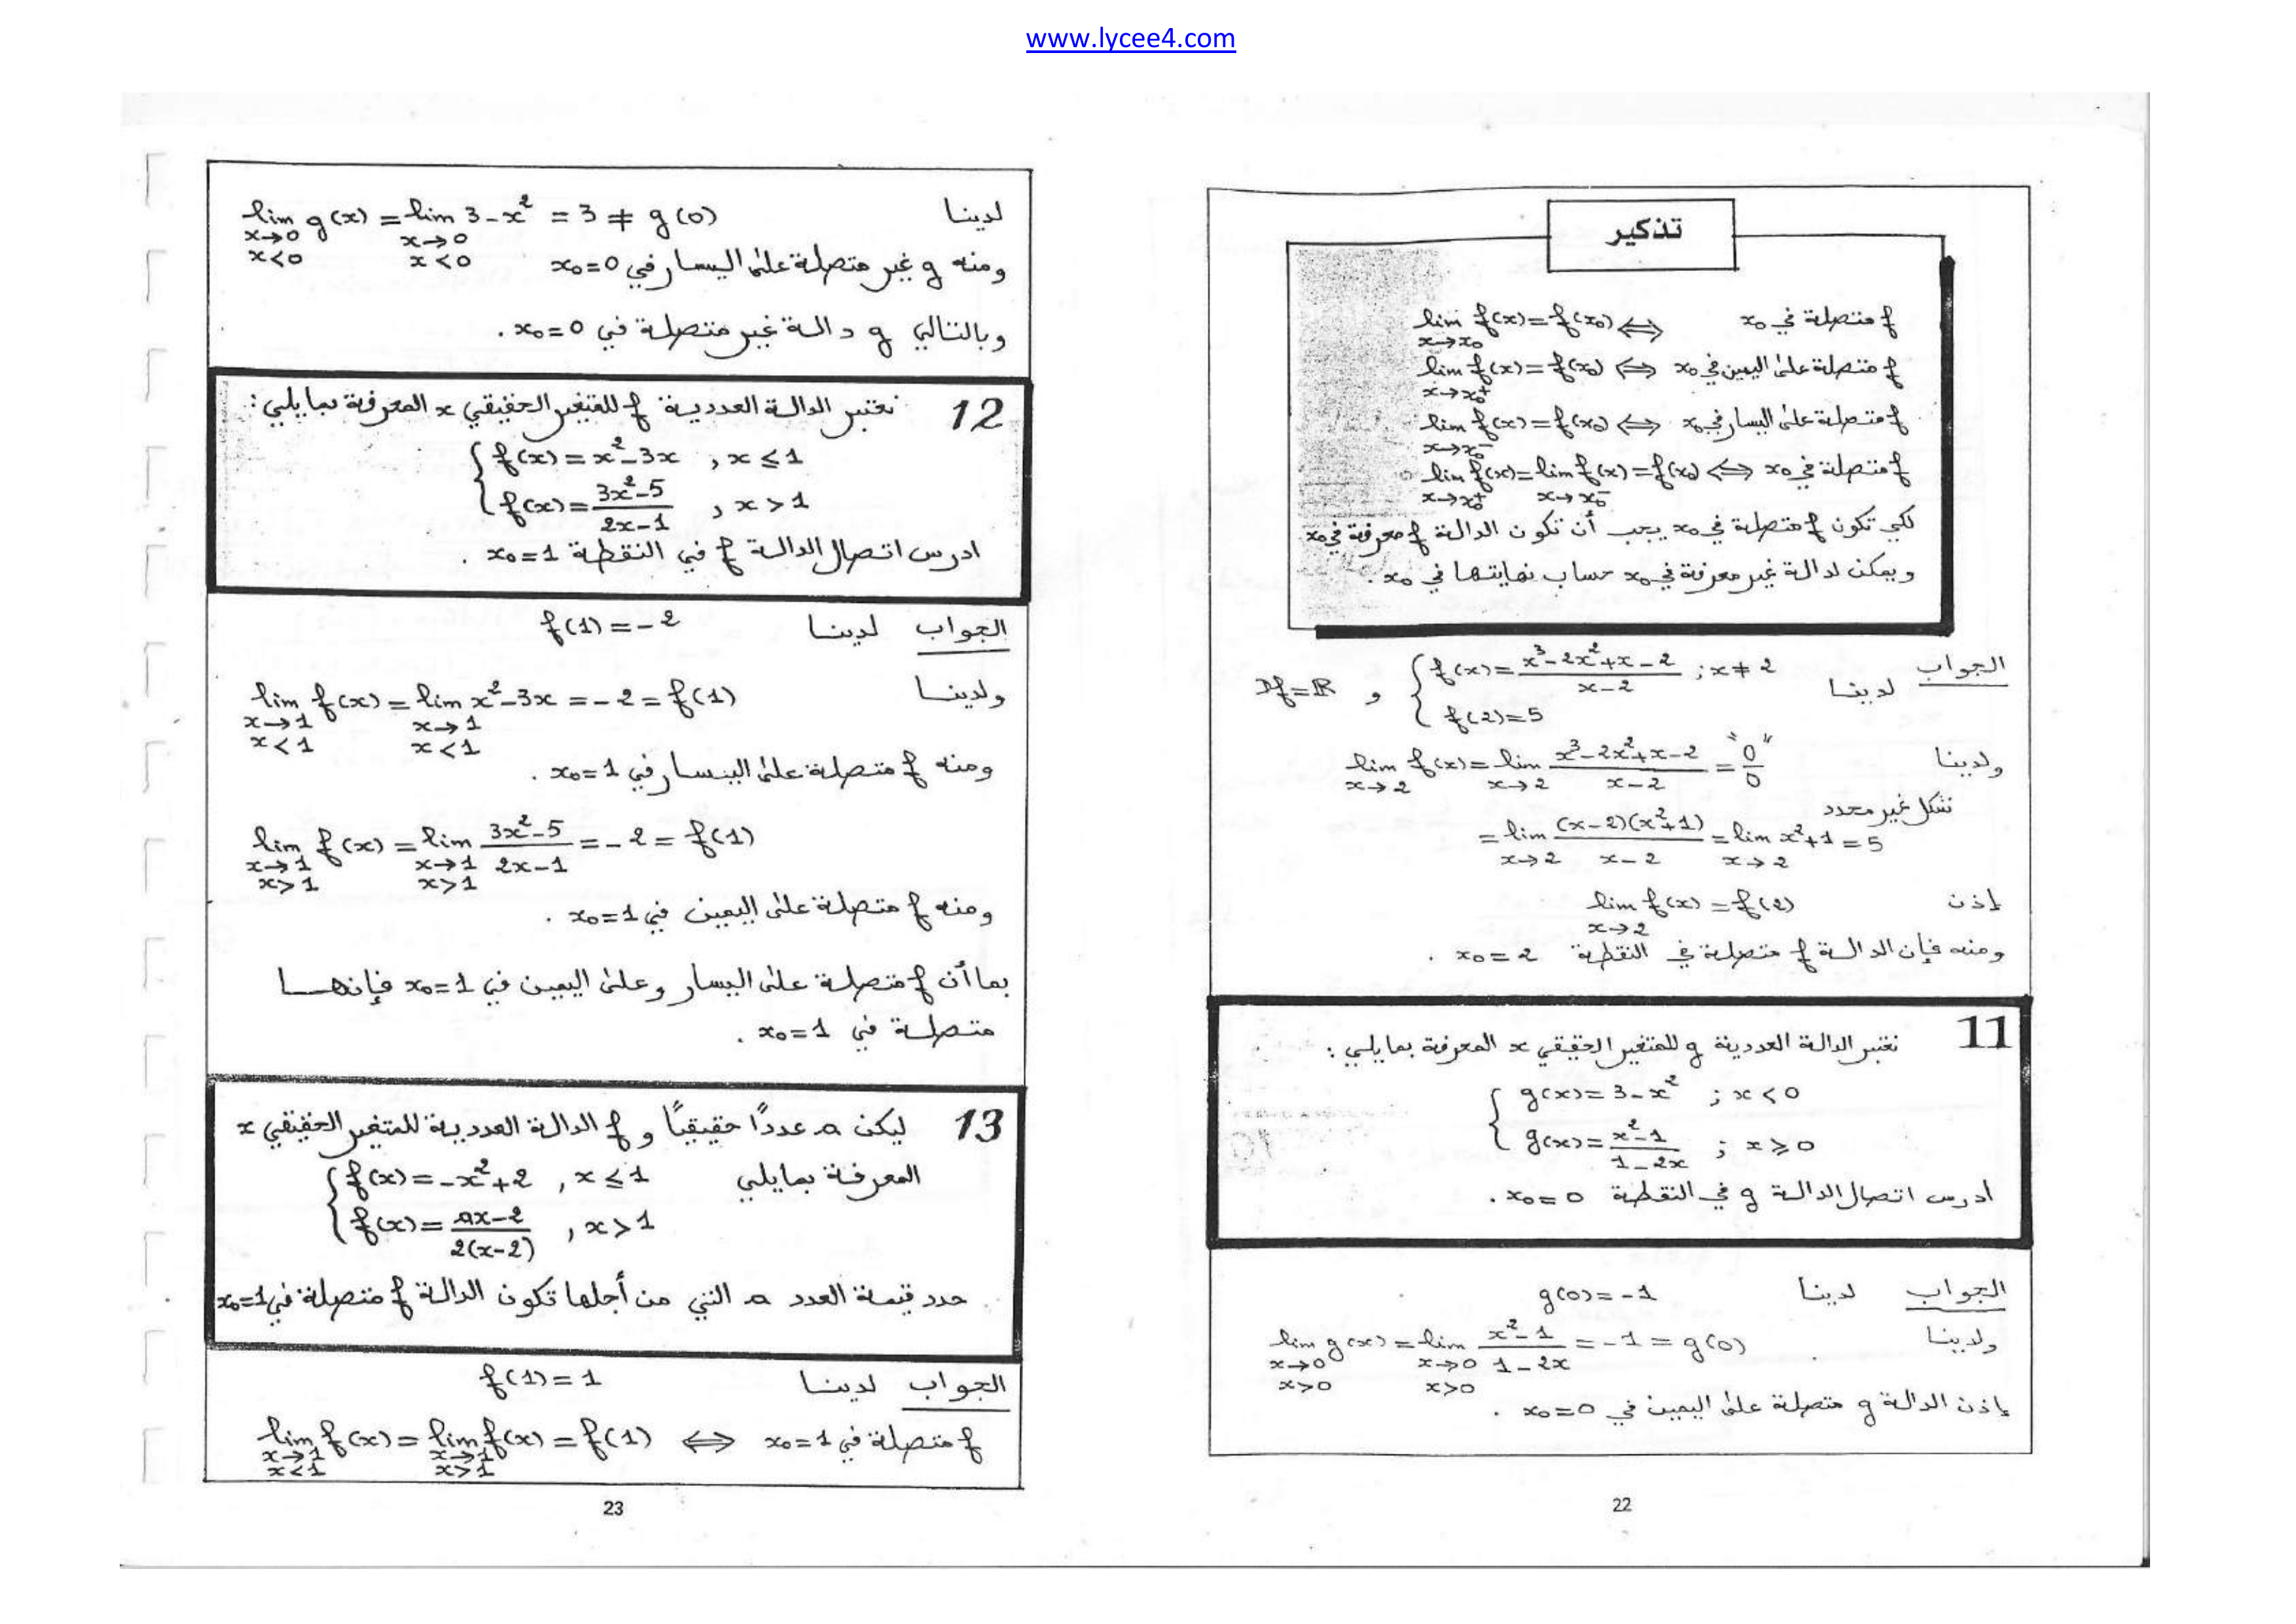 www.lycee4.com
تذكير
f متصلة في x₀ ⇔ lim f(x) = f(x₀)
x→x₀
f متصلة على اليمين في x₀ ⇔ lim f(x) = f(x₀)
x→x₀⁺
f متصلة على اليسار في x₀ ⇔ lim f(x) = f(x₀)
x→x₀⁻
f متصلة في x₀ ⇔ lim f(x) = lim f(x) = f(x₀)
x→x₀⁺ x→x₀⁻
لكي تكون f متصلة في x₀ يجب أن تكون الدالة f معرفة في x₀
ويمكن لدالة غير معرفة في x₀ حساب نهايتها في x₀.
الجواب لدينا { f(x) = (x³-2x²+x-2)/(x-2) ; x ≠ 2 و Df = ℝ
f(2) = 5
ولدينا lim f(x) = lim (x³-2x²+x-2)/(x-2) = "0/0"
x→2 x→2
شكل غير محدد
= lim (x-2)(x²+1)/(x-2) = lim x²+1 = 5
x→2 x→2
إذن lim f(x) = f(2)
x→2
ومنه فإن الدالة f متصلة في النقطة x₀ = 2 .
11 نعتبر الدالة العددية g للمتغير الحقيقي x المعرفة بمايلي :
{ g(x) = 3-x² ; x < 0
g(x) = (x²-1)/(1-2x) ; x ⩾ 0
ادرس اتصال الدالة g في النقطة x₀ = 0 .
الجواب لدينا g(0) = -1
ولدينا lim g(x) = lim (x²-1)/(1-2x) = -1 = g(0)
x→0 x→0
x>0 x>0
إذن الدالة g متصلة على اليمين في x₀ = 0 .
22
لدينا lim g(x) = lim 3-x² = 3 ≠ g(0)
x→0 x→0
x<0 x<0
ومنه g غير متصلة على اليسار في x₀ = 0
وبالتالي g دالة غير متصلة في x₀ = 0 .
12 نعتبر الدالة العددية f للمتغير الحقيقي x المعرفة بمايلي :
{ f(x) = x²-3x , x ≤ 1
f(x) = (3x²-5)/(2x-1) , x > 1
ادرس اتصال الدالة f في النقطة x₀ = 1 .
الجواب لدينا f(1) = -2
ولدينا lim f(x) = lim x²-3x = -2 = f(1)
x→1 x→1
x<1 x<1
ومنه f متصلة على اليسار في x₀ = 1 .
lim f(x) = lim (3x²-5)/(2x-1) = -2 = f(1)
x→1 x→1
x>1 x>1
ومنه f متصلة على اليمين في x₀ = 1 .
بما أن f متصلة على اليسار وعلى اليمين في x₀ = 1 فإنها
متصلة في x₀ = 1 .
13 ليكن a عددًا حقيقيًا و f الدالة العددية للمتغير الحقيقي x
المعرفة بمايلي { f(x) = -x²+2 , x ≤ 1
f(x) = (ax-2)/(2(x-2)) , x > 1
حدد قيمة العدد a التي من أجلها تكون الدالة f متصلة في x₀ = 1
الجواب لدينا f(1) = 1
f متصلة في x₀ = 1 ⇔ lim f(x) = lim f(x) = f(1)
x→1 x→1
x<1 x>1
23